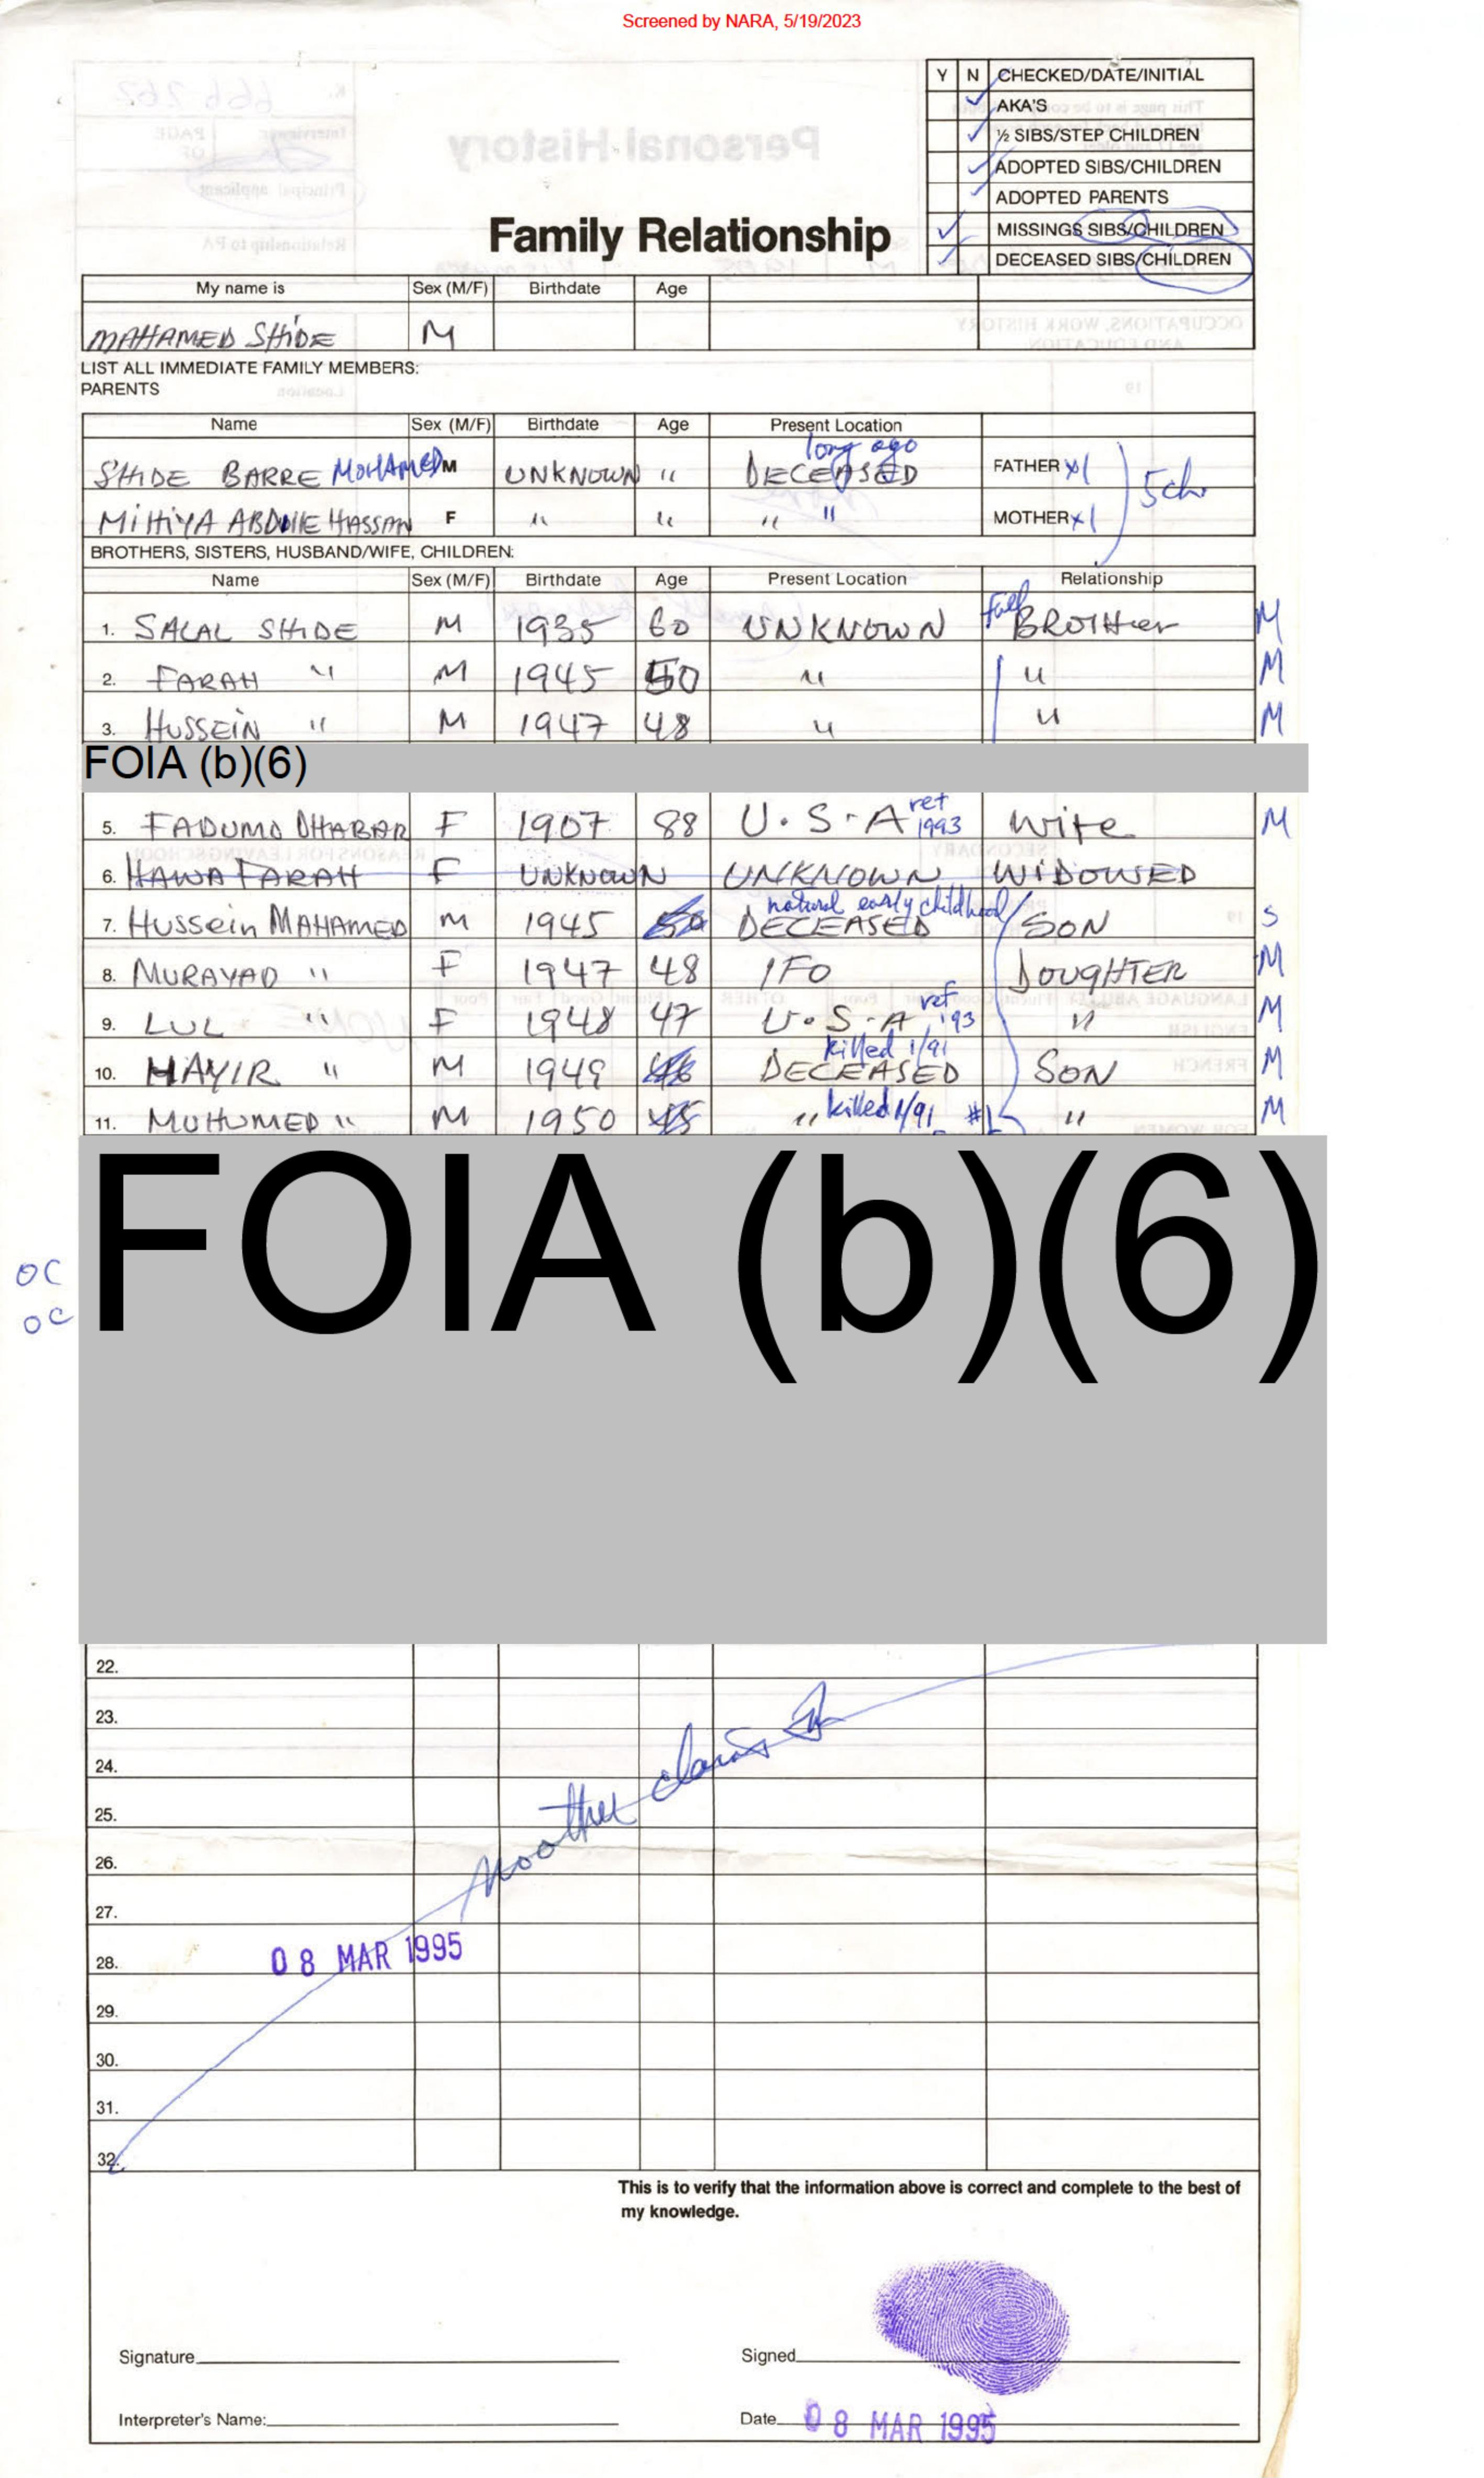 Screened by NARA, 5/19/2023
Y N CHECKED/DATE/INITIAL
AKA'S
½ SIBS/STEP CHILDREN
ADOPTED SIBS/CHILDREN
ADOPTED PARENTS
MISSINGS SIBS/CHILDREN
DECEASED SIBS/CHILDREN
Personal History
Family Relationship
My name is Sex (M/F) Birthdate Age
MAHAMED SHIDE M
LIST ALL IMMEDIATE FAMILY MEMBERS:
PARENTS
Name Sex (M/F) Birthdate Age Present Location
long ago
SHIDE BARRE MOHAMED M UNKNOWN " DECEASED FATHER x1 5ch
MIHIYA ABDULLE HASSAN F " " " " MOTHER x1
BROTHERS, SISTERS, HUSBAND/WIFE, CHILDREN:
Name Sex (M/F) Birthdate Age Present Location Relationship
1. SALAL SHIDE M 1935 60 UNKNOWN full BROTHER M
2. FARAH " M 1945 50 " " M
3. HUSSEIN " M 1947 48 " " M
FOIA (b)(6)
5. FADUMO DHABAR F 1907 88 U.S.A ref 1993 wife M
6. HAWA FARAH F UNKNOWN UNKNOWN WIDOWED
natural early childhood
7. HUSSEIN MAHAMED M 1945 50 DECEASED SON S
8. MURAYAD " F 1947 48 IFO DOUGHTER M
9. LUL " F 1948 47 U.S.A ref '93 " M
killed 1/91
10. HAYIR " M 1949 46 DECEASED SON M
11. MUHUMED " M 1950 45 " killed 1/91 #1 " M
FOIA (b)(6)
OC
OC
22.
23.
24.
25.
26.
27.
28.
29.
30.
31.
32.
08 MAR 1995
This is to verify that the information above is correct and complete to the best of
my knowledge.
Signature Signed
Interpreter's Name: Date 08 MAR 1995